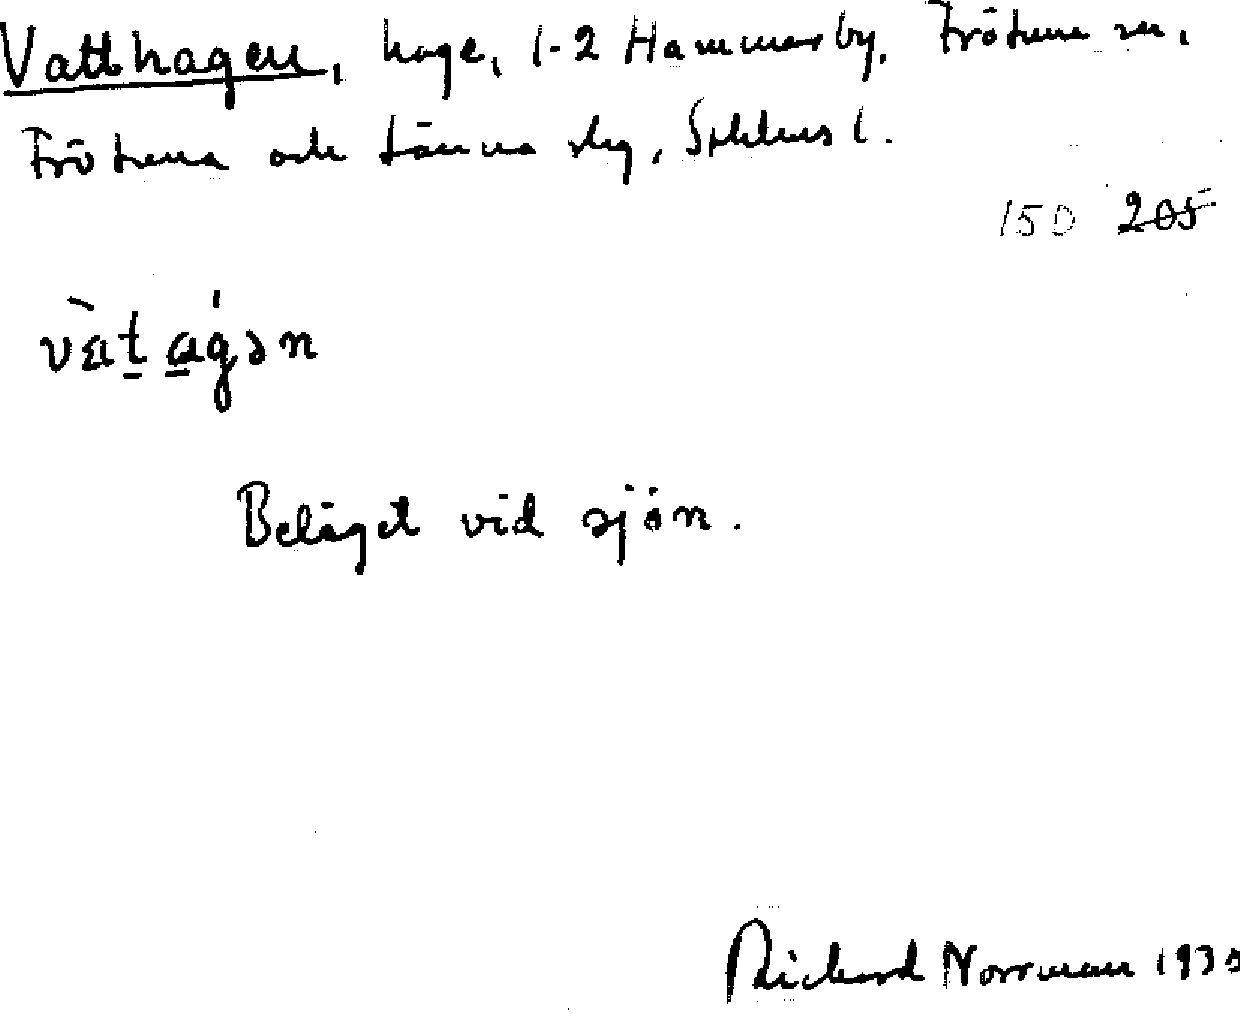 Vatthagen, hage, 1-2 Hammarby, Frötuna sn,
Frötuna och Länna skg, Sthlms l.
150 205
vàt agən
Beläget vid sjön.
Richard Norrman